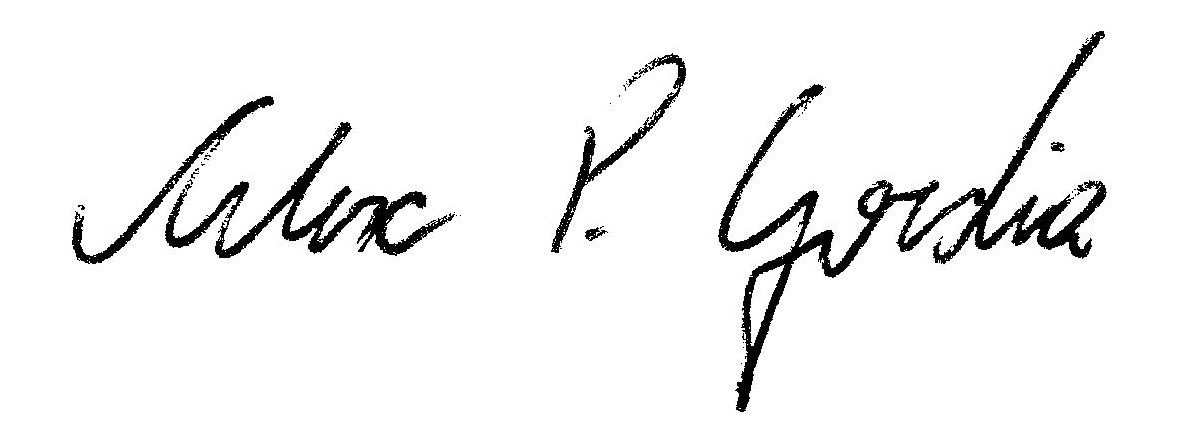 Alex P. Gordia